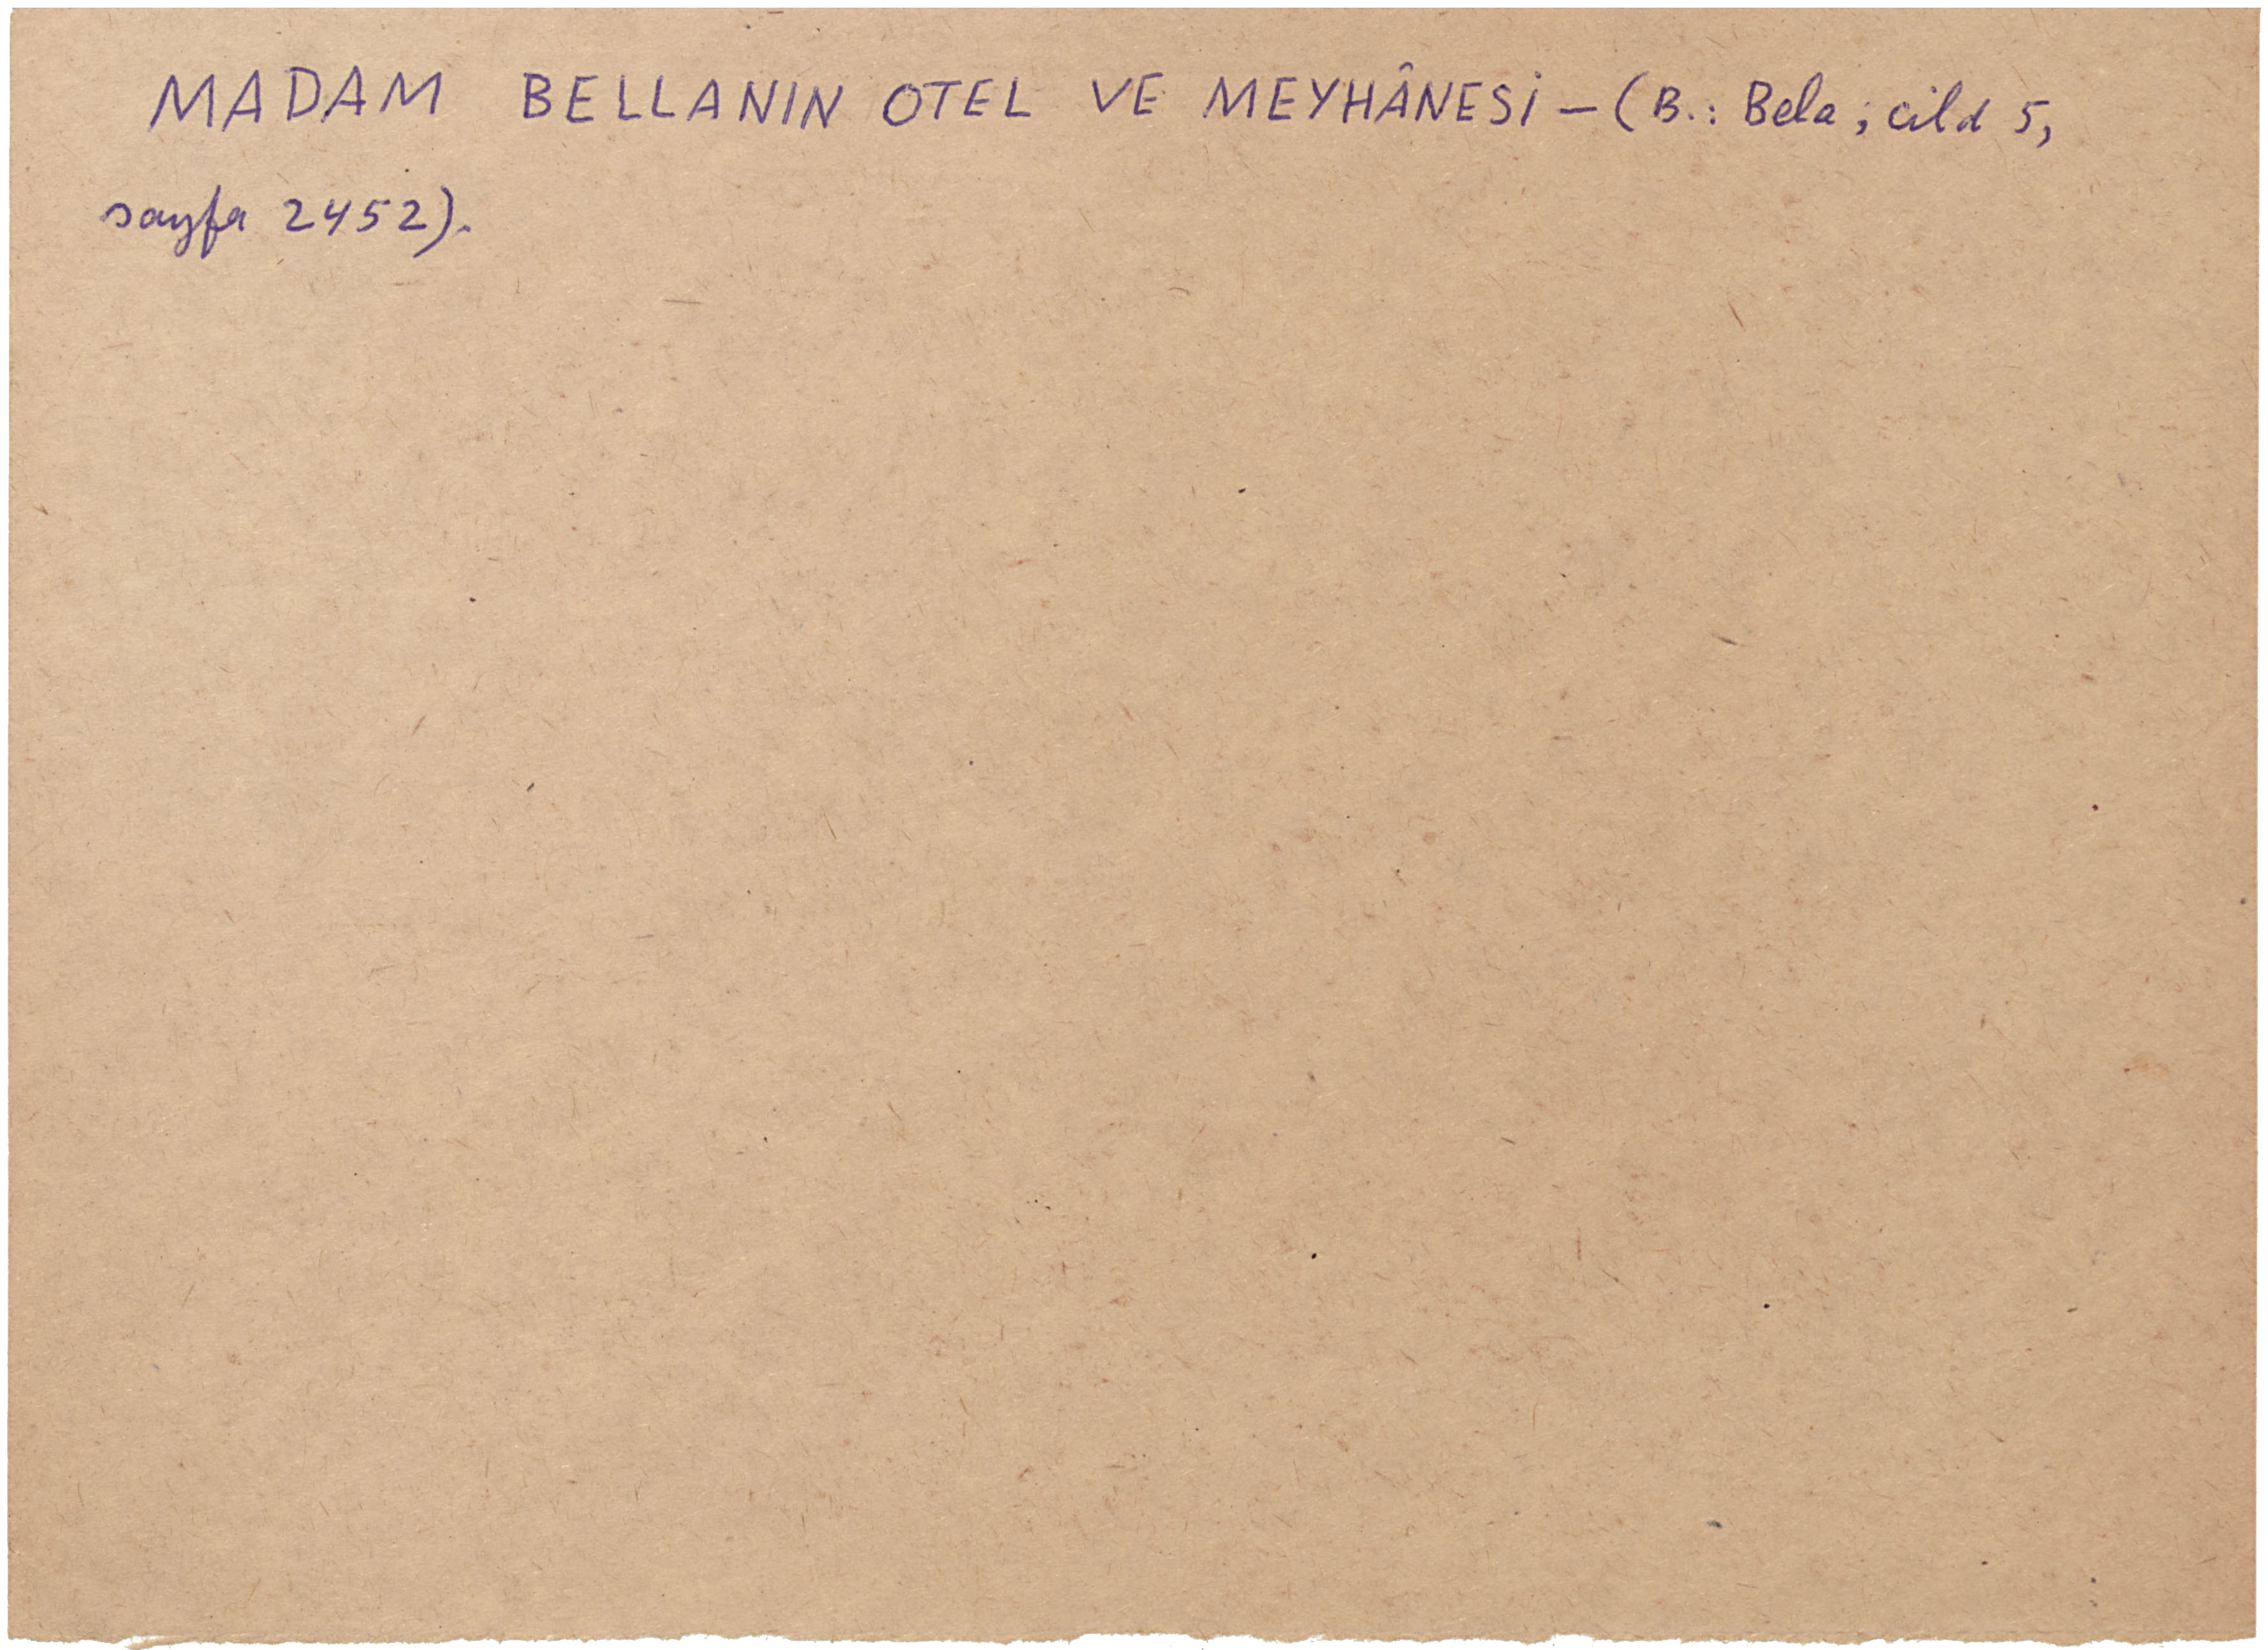 MADAM BELLANIN OTEL VE MEYHÂNESİ – (B.: Bela; cild 5,
sayfa 2452).